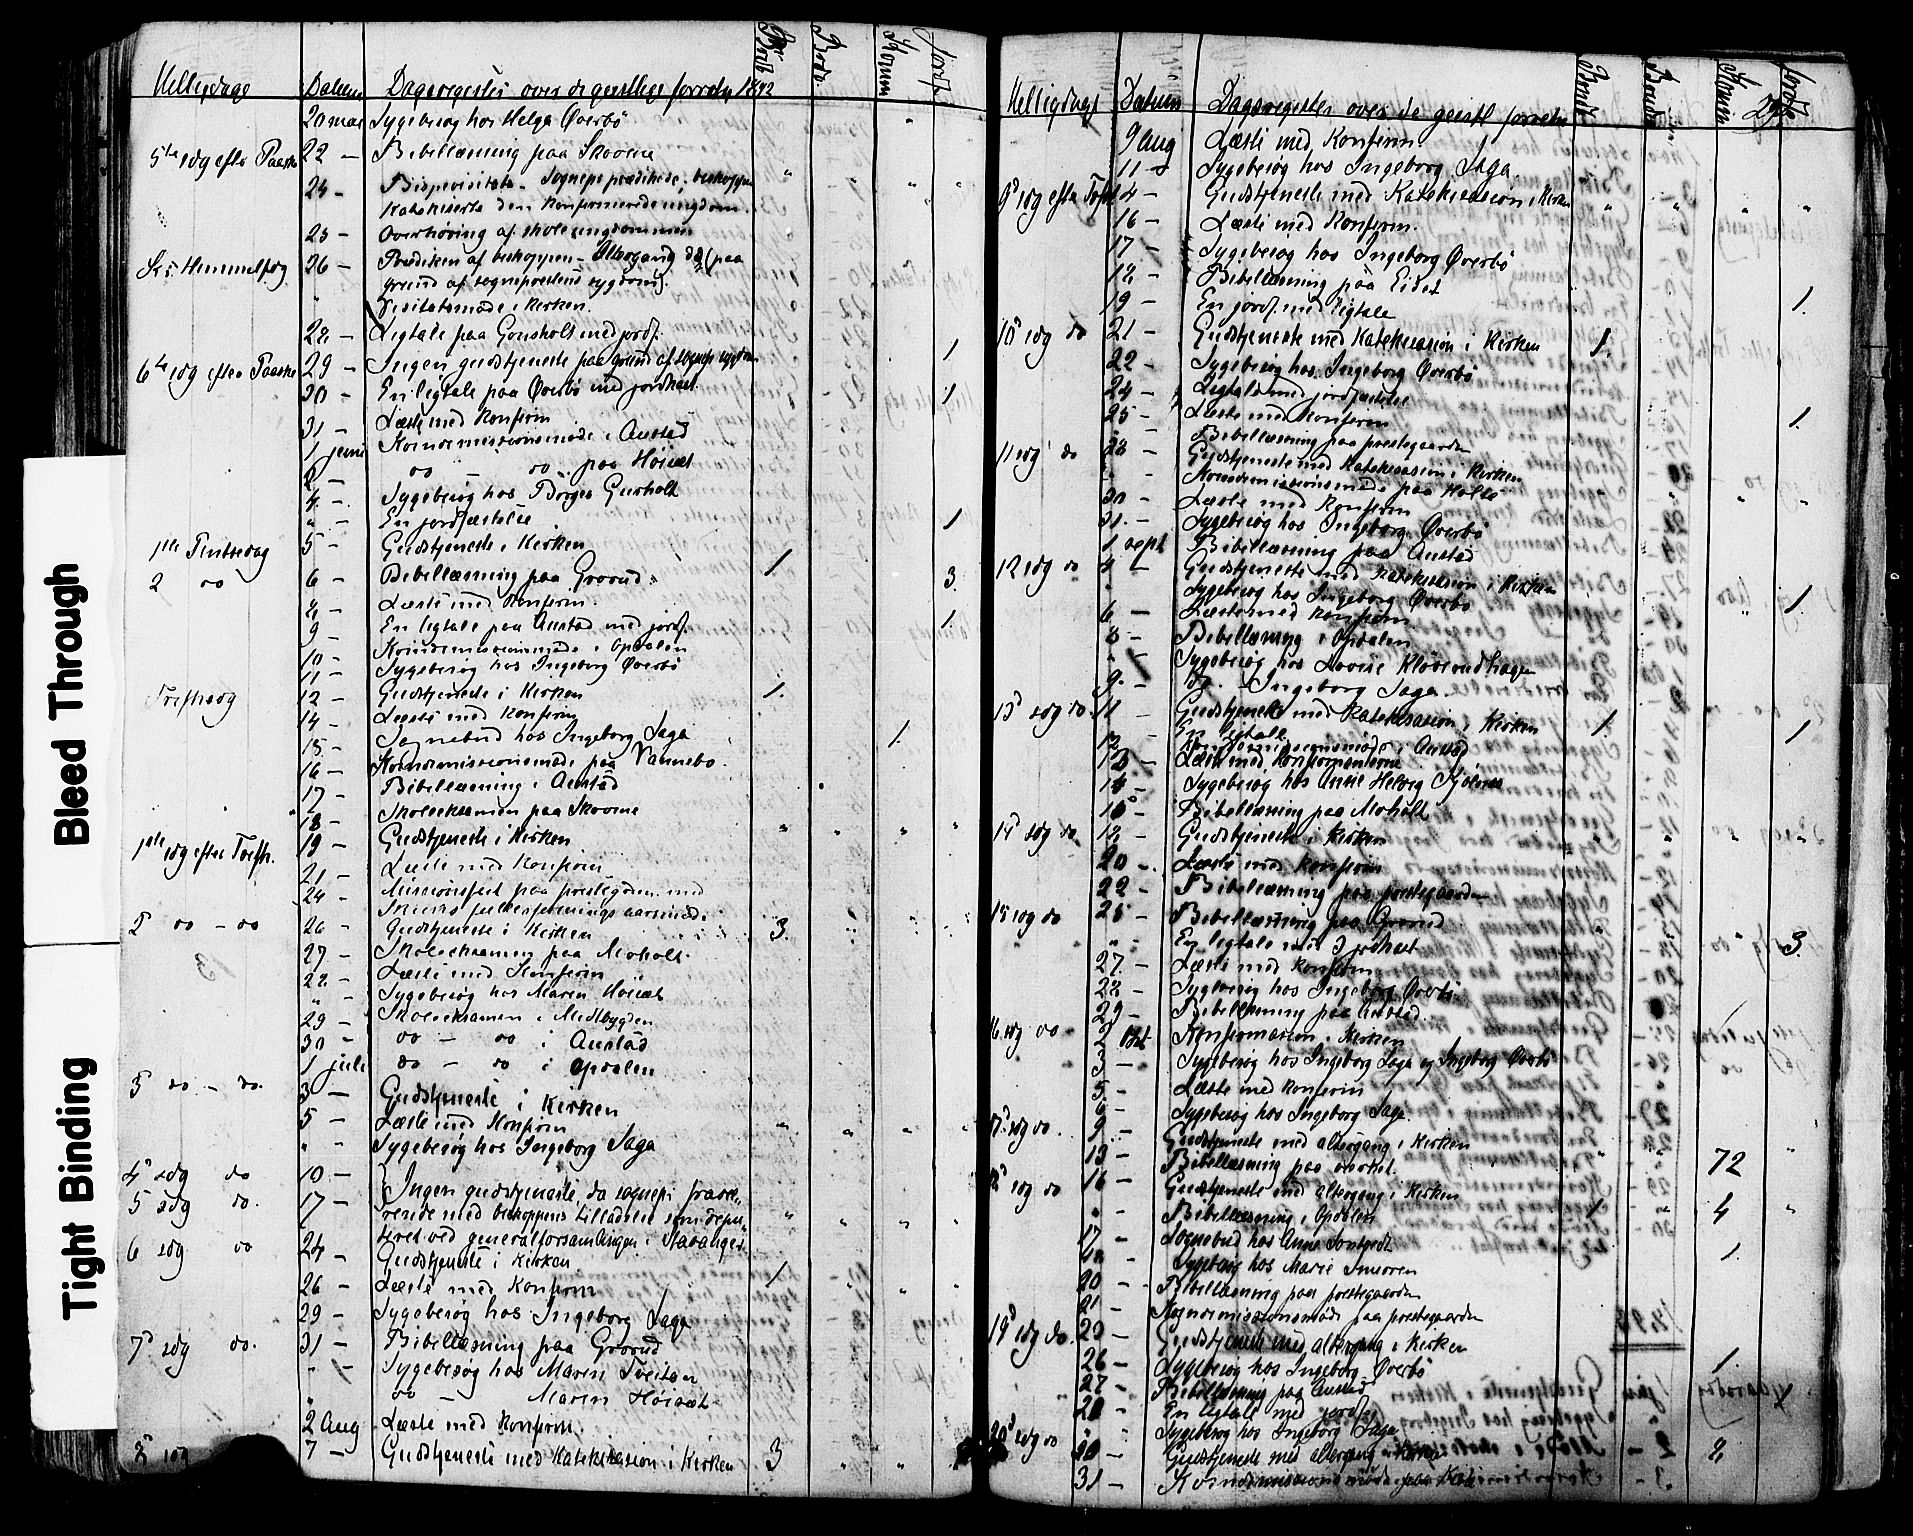 Bleed Through
Tight Binding
Helligdage Datum Dagsregister over de geistlige forretn. 1892
20 mai Sygebesøg hos Helga Øverbö
5te søg efter Paaske 22 — Bibellæsning paa Skoone
24 — Bispevisitats – Sognepr prædikede, biskoppen
katekiserte den konfirmerede ungdom.
25 — Overhöring af skoleungdommen
Kr. Himmelf.dg 26 — Prædiken af biskoppen – Altergang (paa
grund af sogneprestens sygdom).
Visitatsmøde i kirken.
28 — Ligtale paa Gonsholt med jordf. 1
6te søg efter Paaske 29 — Ingen gudstjeneste paa grund af sognepr sygdom
30 — En ligtale paa Øverbö med jordkast. 1
31 — Læste med Konfirm
1 juni Koindremissionsmøde i Austad
2 — do — do paa Höisæt
4 — Sygebesøg hos Börges Gusholt
" — En jordfæstelse 1
1ste Pintsedag 5 — Gudstjeneste i Kirken 1
2 do 6 — Bibellæsning paa Grorud 3.
8 — Læste med Konfirm.
9 — En ligtale paa Austad med jordf. 1
10 — Koindremissionsmøde i Opdalen
11 — Sygebesøg hos Ingeborg Øverbö
Trefsøg 12 — Gudstjeneste i Kirken 1.
14 — Læste med Konfirm
15 — Sognebud hos Ingeborg Saga 1.
16 — Koindremissionsmøde paa Vannebo.
17 — Bibellæsning i Austad
18 — Skoleeksamen paa Skoone
1ste søg efter Trefh. 19 — Gudstjeneste i Kirken
21 — Læste med Konfirm
24 — Missionsfest paa prestegden med
aarsmøde.
2 do — do 26 — Gudstjeneste i Kirken 3.
27 — Skoleeksamen paa Moholt.
28 — Læste med Konfirm
" — Sygebesøg hos Maren Höisæt
29 — Skoleeksamen i Midtbygden
30 — do — do i Austad
1 juli do — do i Opdalen
3 do — do. 3 — Gudstjeneste i Kirken
5 — Læste med Konfirm
" " Sygebesøg hos Ingeborg Saga
4d søg do 10 — Ingen gudstjeneste, da sognepr. fravæ-
5 søg do. 17 — rende med biskoppens tilladelse som depu-
teret ved generalforsamlingen i Stavanger.
6 søg do 24 — Gudstjeneste i Kirken 1
26 — Læste med Konfirm
29 — Sygebesøg hos Ingeborg Saga
7d søg do. 31 — Bibellæsning paa Grorud
" — Sygebesøg hos Maren Tveitan
" do — Maren Höisæt
2 Aug Læste med Konfirm.
8d søg 7 — Gudstjeneste med Katekisasion i Kirken 3
Helligdage Datum Dagsregister over de geistl forretn 295
9 aug Læste med Konfirm
11 — Sygebesøg hos Ingeborg Saga
9d søg efter Trefh 14 — Gudstjeneste med Katekisasion i Kirken
16 — Læste med Konfirm.
17 — Sygebesøg hos Ingeborg Øverbö
18 — Bibellæsning paa Eidet
19 — En jordf. med ligtale 1.
10d søg do 21 — Gudstjeneste med Katekisasion i Kirken 1.
22 — Sygebesøg hos Ingeborg Øverbö
24 — Ligtale med jordfæstelse
25 — Læste med Konfirm 1.
" Bibellæsning paa prestegaarden
11 søg do 28 — Gudstjeneste med Katekisasion i Kirken
" — Koindremissionsmøde paa Holte
30 — Læste med Konfirm
31. — Sygebesøg hos Ingeborg Øverbö
1 sept Bibellæsning paa Austad
12 søg do 4 — Gudstjeneste med Katekisasion i Kirken
Sygebesøg hos Ingeborg Øverbö 1.
6 — Læste med Konfirm
8 — Bibellæsning i Opdalen
" Sygebesøg hos Lovise
9. — Do. — Ingeborg Saga
13d søg do. 11 — Gudstjeneste med Katekisasion i Kirken 1. 1
En ligtale
12 Koindremissionsmøde i Austad
13 — Læste med Konfirmanterne
14 — Sygebesøg hos Anne Helvig
15 — Bibellæsning paa Moholt
14d søg do 18 — Gudstjeneste i Kirken
20 — Læste med Konfirm
22 — Bibellæsning paa prestegaarden
15 søg do 25 — Bibellæsning paa Grorud
" En ligtale med 3 jordkast 3.
27 — Læste med Konfirm
28 — Sygebesøg hos Ingeborg Øverbö
29 — Bibellæsning paa Austad.
16 søg do 2 Okt. Konfirmasion i Kirken
3 — Sygebesøg hos Ingeborg Saga og Ingeborg Øverbö
5. — Læste med Konfirm
6 — Sygebesøg hos Ingeborg Saga
17d søg do. 9 — Gudstjeneste med altergang i Kirken 72
13 — Bibellæsning paa
18d søg do 16 — Gudstjeneste med altergang i Kirken 4
" Bibellæsning i Opdalen 1
17 — Sognebud hos Anne 1.
18 — Sygebesøg hos Marie
20 — Bibellæsning paa prestegaarden
21 — Koindremissionsmøde paa prestegaarden
19d søg do. 23 — Gudstjeneste med altergang i Kirken 1.
26 — Sygebesøg hos Ingeborg Øverbö
27 — Bibellæsning paa Austad
28 — En ligtale med jordf. 1
" Sygebesøg hos Ingeborg Saga
20d søg do 30 — Gudstjeneste med altergang i Kirken 2
31 — Koindremissionsmøde paa